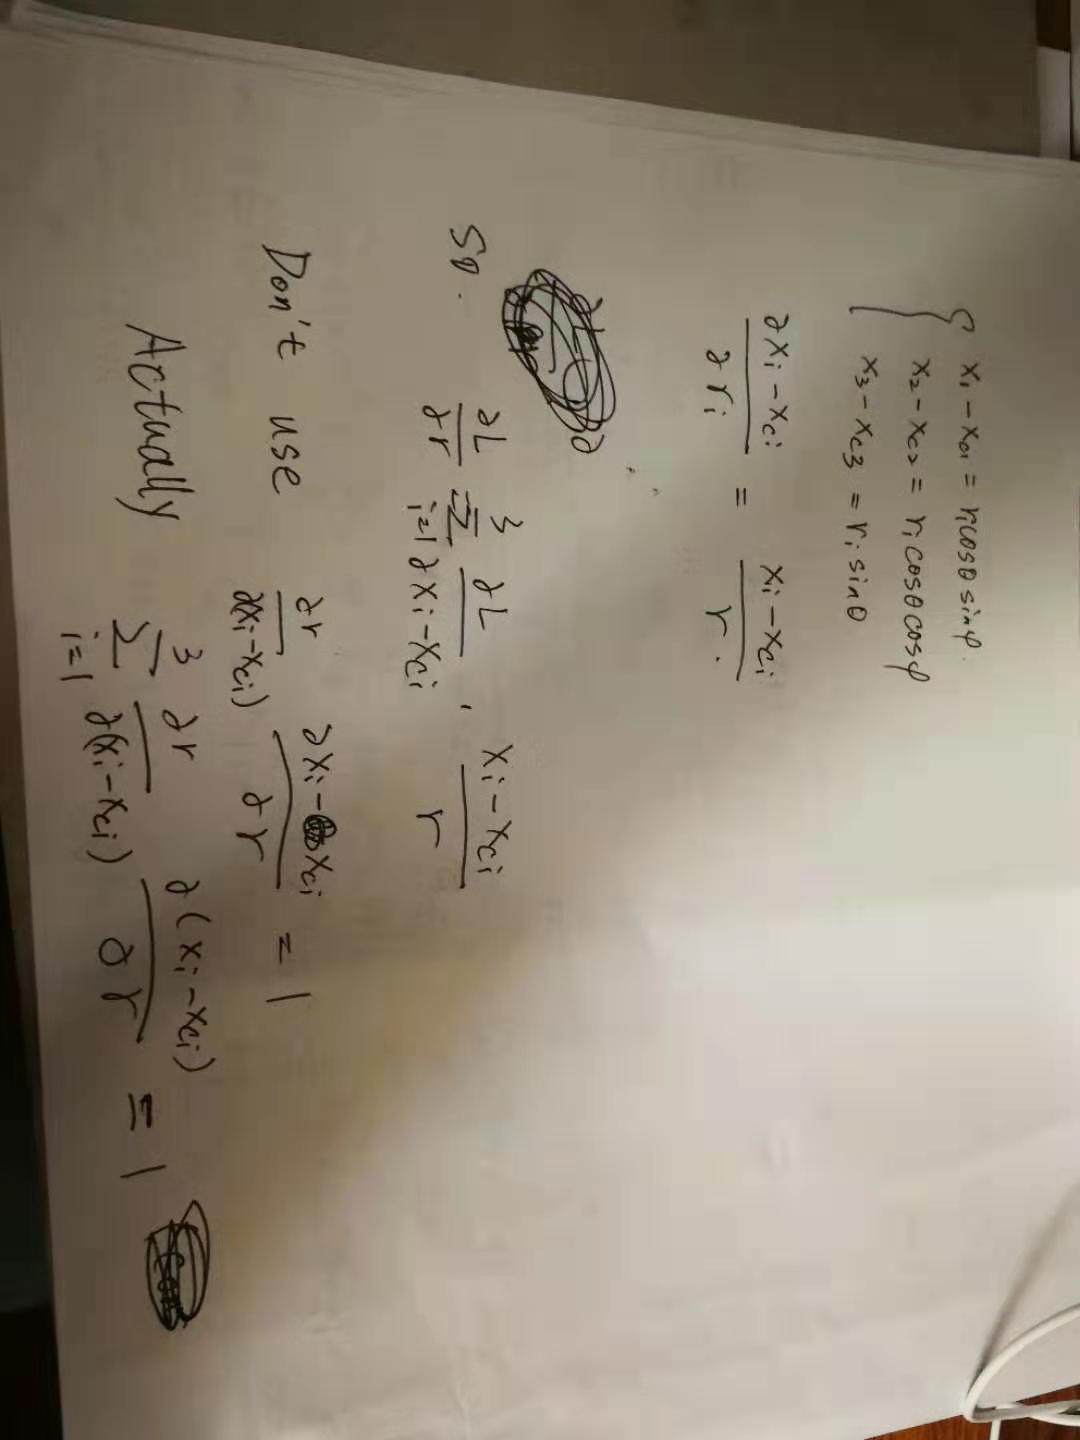 x₁ - x₀₁ = r₁cosθ sinφ.
x₂ - x_c₂ = r₁ cosθ cosφ
x₃ - x_c₃ = r₁ sinθ
∂x_i - x_ci / ∂r_i = x_i - x_ci / r.
So. ∂L/∂r = Σ_{i=1}^{3} ∂L / ∂x_i - x_ci · x_i - x_ci / r
Don't use ∂r / ∂(x_i - x_ci) ∂x_i - x_ci / ∂r = 1
Actually Σ_{i=1}^{3} ∂r / ∂(x_i - x_ci) ∂(x_i - x_ci) / ∂r = 1